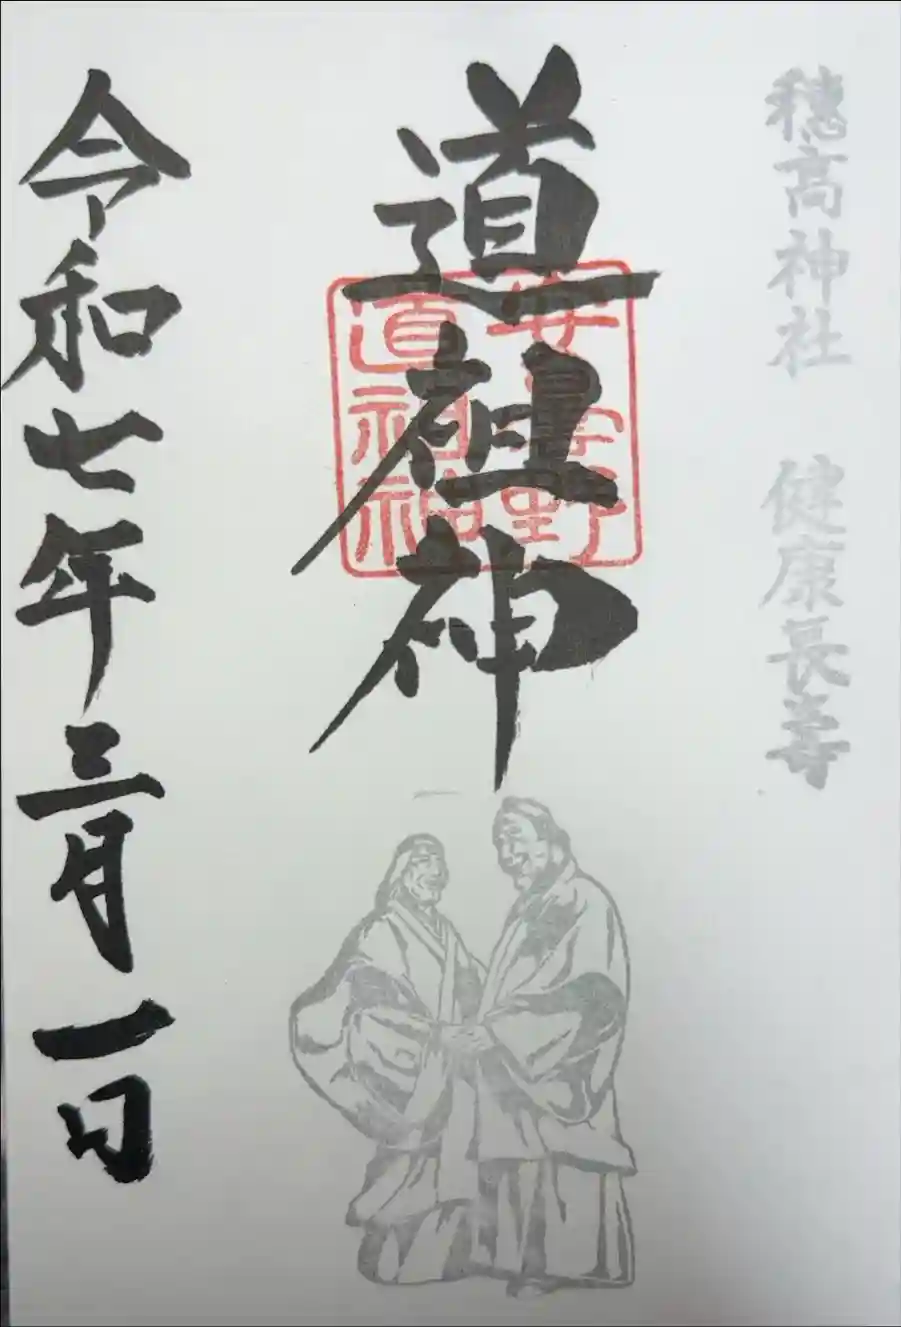 穂髙神社　健康長寿
道祖神
安曇野
道祖神
令和七年三月一日